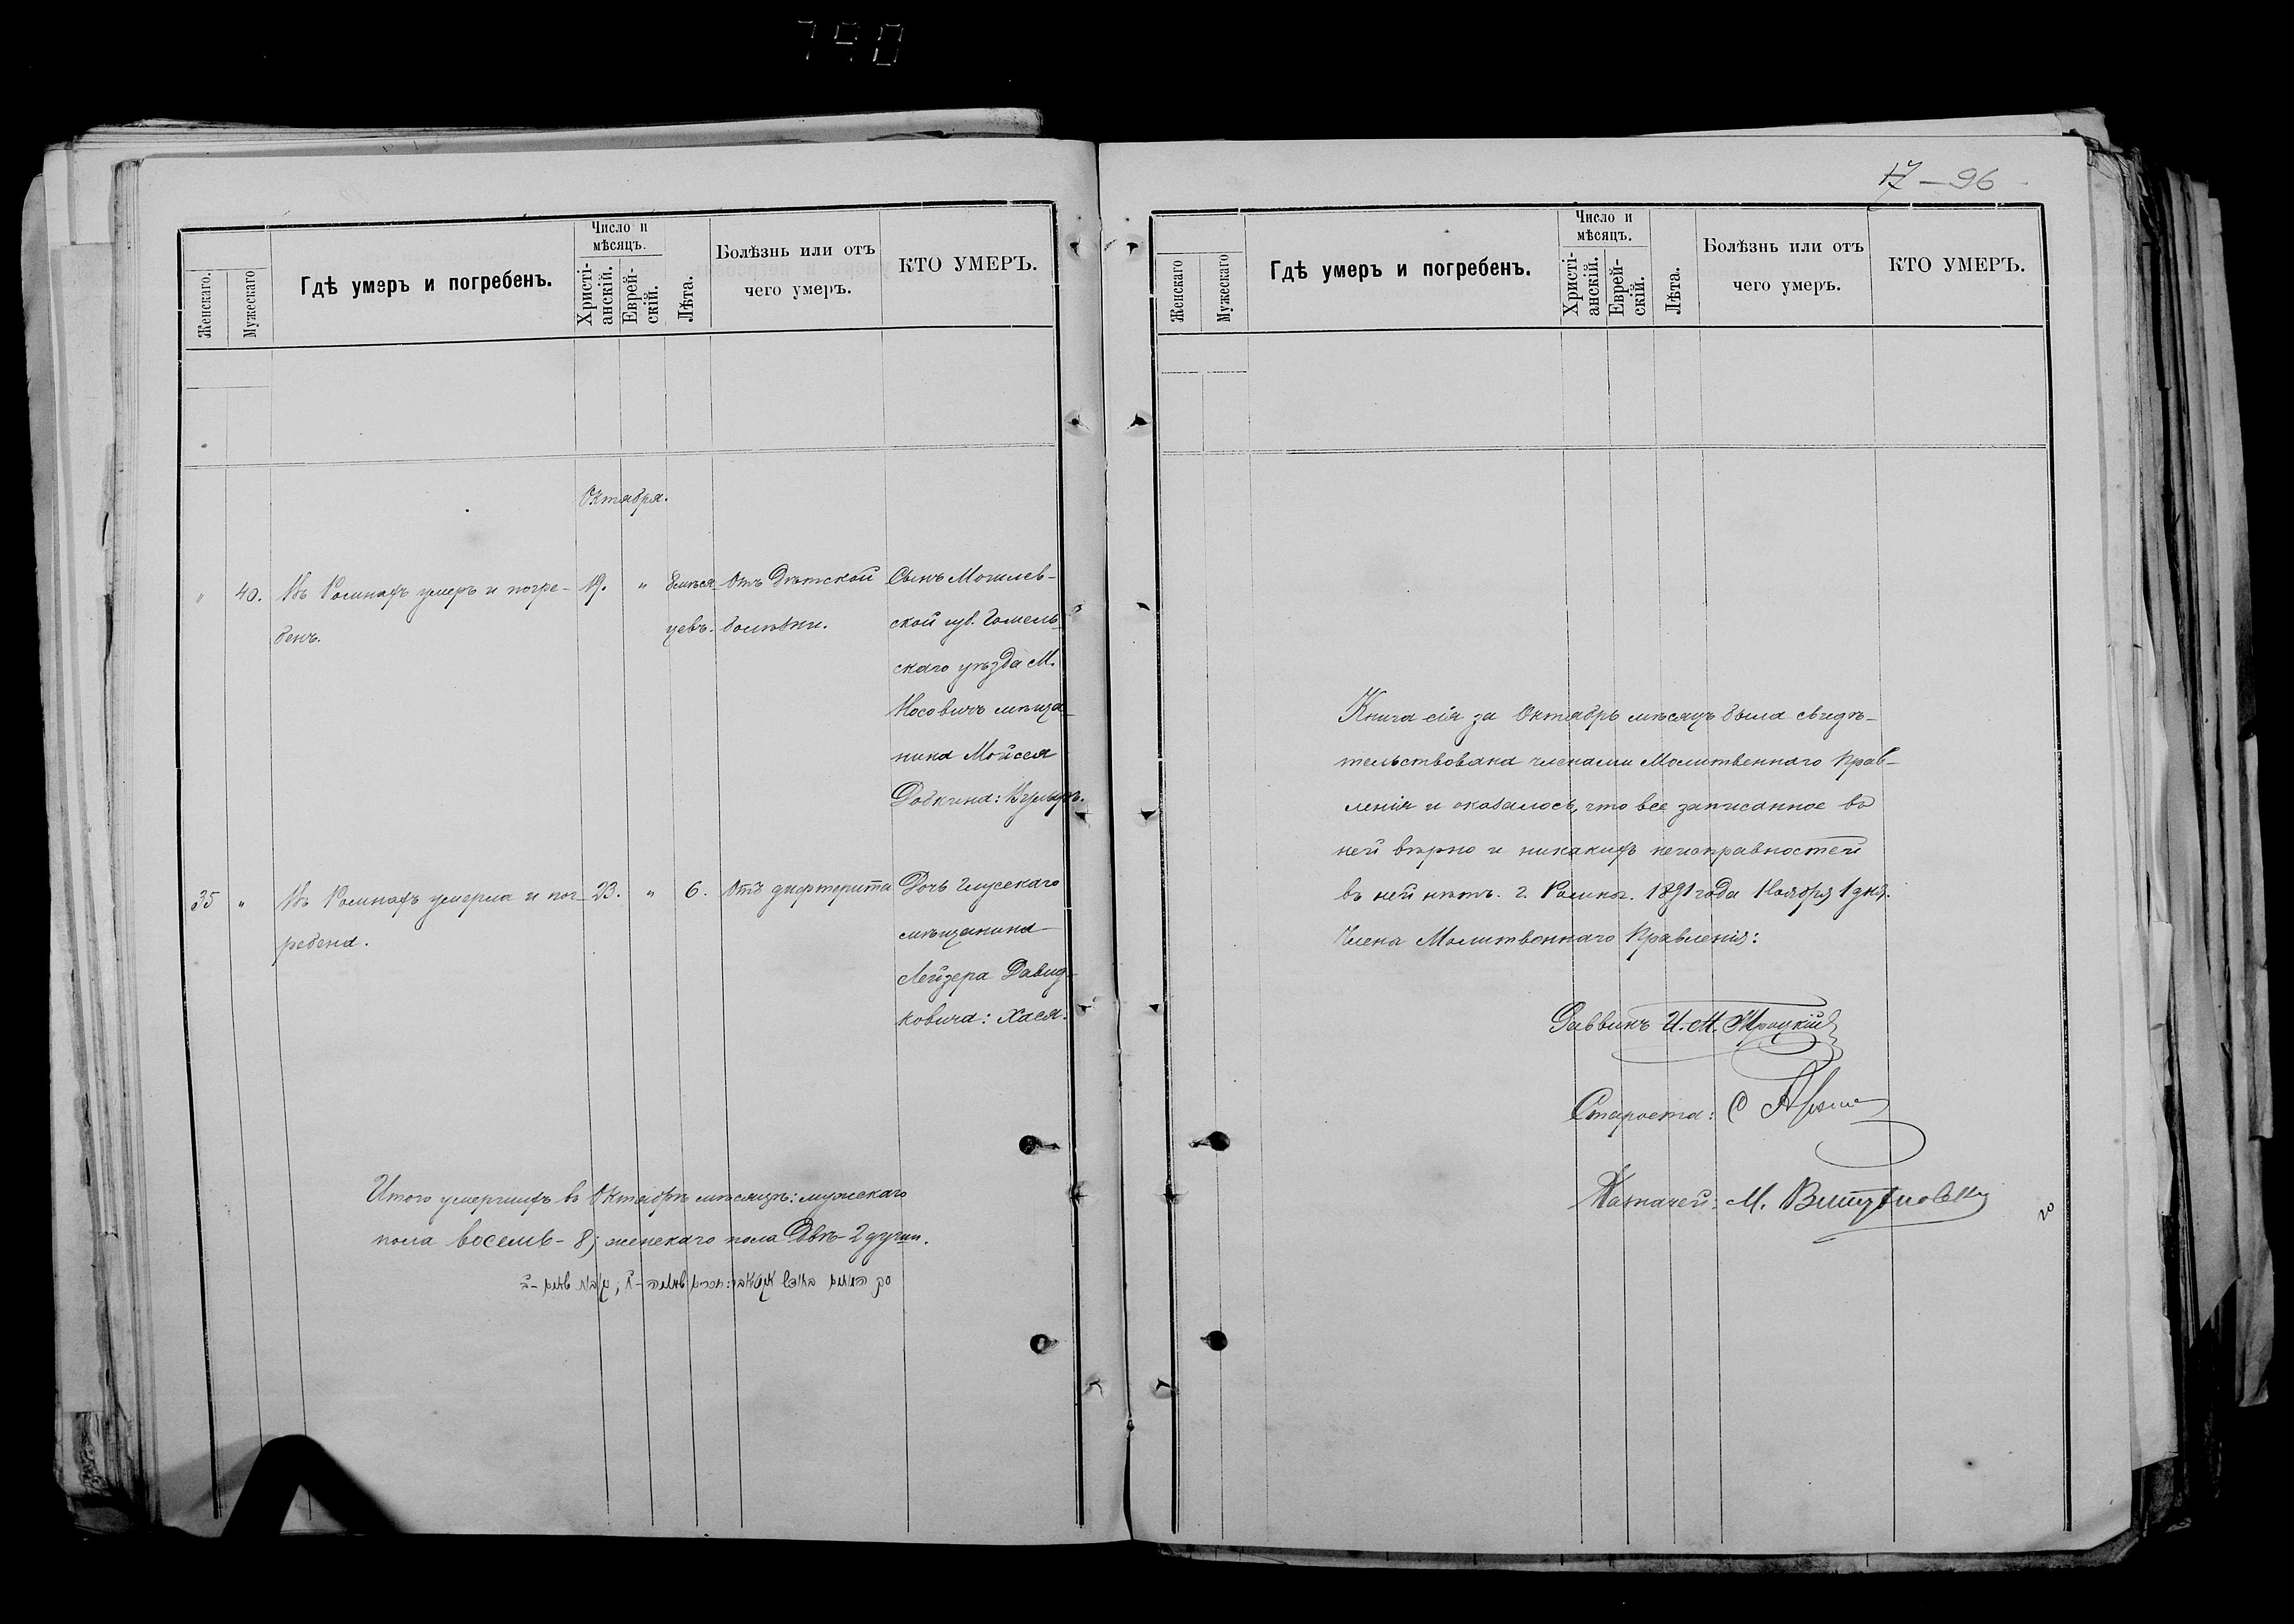 790
Женскаго.
Мужескаго
Гдѣ умеръ и погребенъ.
Число и
мѣсяцъ.
Христі-
анскій.
Еврей-
скій.
Лѣта.
Болѣзнь или отъ
чего умеръ.
КТО УМЕРЪ.
Октября.
" 40. Въ Ромнахъ умеръ и погре-
бенъ.
19. "
8 мѣся-
цевъ.
Отъ Дѣтской
болѣзни.
Сынъ Могилев-
ской губ. Гомель-
скаго уѣзда М.
Носовичъ мѣща-
нина Мойсея
Добкина:
35 " Въ Ромнахъ умерла и пог-
ребена.
23. " 6. Отъ дифтерита
Дочь Глусскаго
мѣщанина
Лейзера Давид-
ковича: Хася.
Итого умершихъ въ Октябрѣ мѣсяцѣ: мужескаго
пола восемь - 8; женскаго пола двѣ - 2 души.
17 - 96
Женскаго
Мужескаго
Гдѣ умеръ и погребенъ.
Число и
мѣсяцъ.
Христі-
анскій.
Еврей-
скій.
Лѣта.
Болѣзнь или отъ
чего умеръ.
КТО УМЕРЪ.
Книга сія за Октябрь мѣсяцъ была свидѣ-
тельствована членами Молитвеннаго Прав-
ленія и оказалось, что все записанное въ
ней вѣрно и никакихъ неисправностей
въ ней нѣтъ. г. Ромны. 1891 года Ноября 1 дня.
Члена Молитвеннаго Правленія:
Раввинъ И. М. Троцкій
Староста: С
Казначей: М.
20